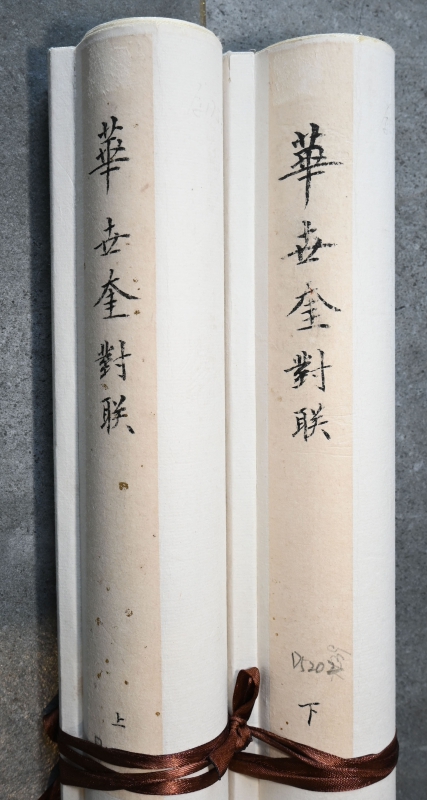 華世奎對联
上
華世奎對联
下